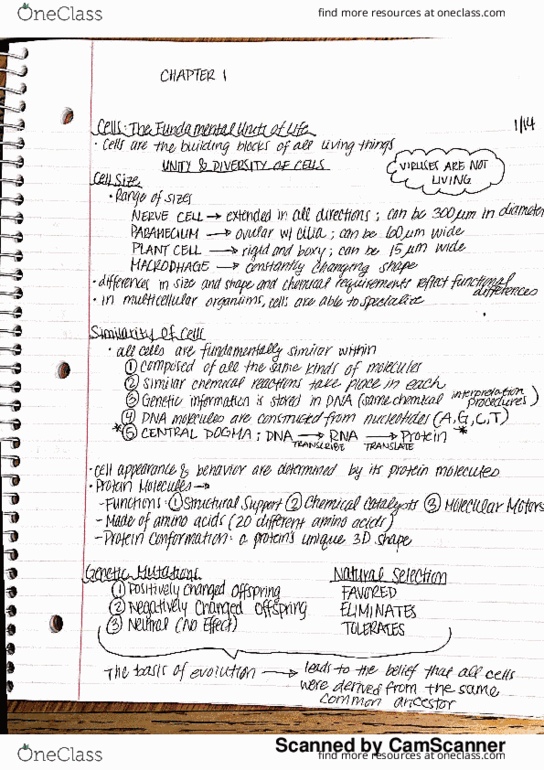 OneClass
find more resources at oneclass.com
CHAPTER 1
Cells: The Fundamental Units of Life
1/14
• Cells are the building blocks of all living things
UNITY & DIVERSITY OF CELLS
VIRUSES ARE NOT
LIVING
Cell Size
• Range of sizes
NERVE CELL → extended in all directions; can be 300 µm in diameter
PARAMECIUM → ovular w/ cilia; can be 160 µm wide
PLANT CELL → rigid and boxy; can be 15 µm wide
MACROPHAGE → constantly changing shape
• differences in size and shape and chemical requirements reflect functional
differences
• in multicellular organisms, cells are able to specialize
Similarity of Cells
• all cells are fundamentally similar within
① composed of all the same kinds of molecules
② Similar chemical reactions take place in each
③ Genetic information is stored in DNA (same chemical interpretation
procedures)
④ DNA molecules are constructed from nucleotides (A,G,C,T)
*⑤ CENTRAL DOGMA: DNA → RNA → Protein *
TRANSCRIBE TRANSLATE
• cell appearance & behavior are determined by its protein molecules
• Protein Molecules →
- Functions: ① Structural Support ② Chemical Catalysts ③ Molecular Motors
- Made of amino acids (20 different amino acids)
- Protein Conformation: a protein's unique 3D shape
Genetic Mutations Natural Selection
① Positively Changed Offspring FAVORED
② Negatively Changed Offspring ELIMINATES
③ Neutral (No Effect) TOLERATES
The basis of evolution → leads to the belief that all cells
were derived from the same
common ancestor
Scanned by CamScanner
OneClass
find more resources at oneclass.com